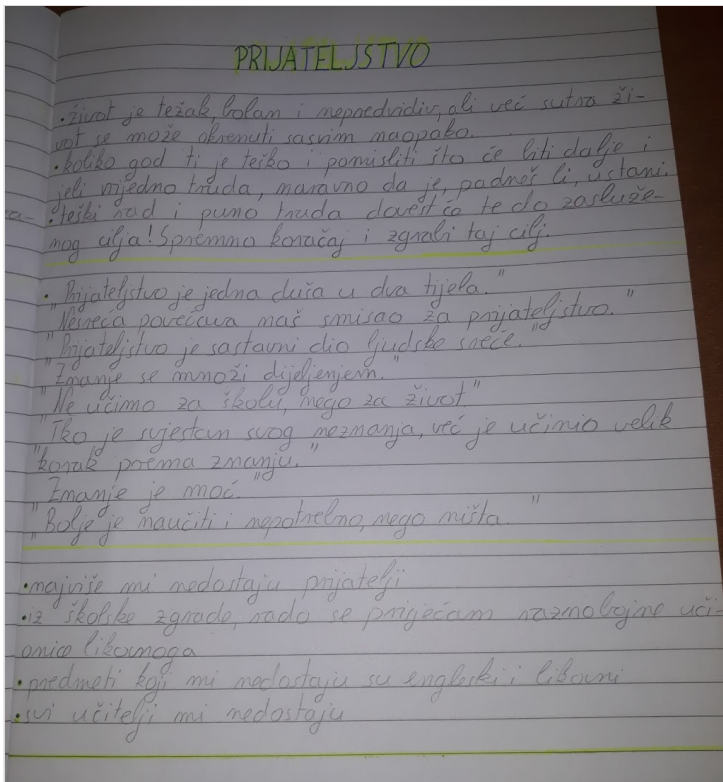 PRIJATELJSTVO
• život je težak, bolan i nepredvidiv, ali već sutra ži-
vot se može okrenuti sasvim naopako.
• koliko god ti je teško i pomisliti što će biti dalje i
jeli vrijedno truda, naravno da je, padneš li, ustani.
• teški rad i puno truda dovest će te do zasluže-
nog cilja! Spremno koračaj i zgrabi taj cilj.
• "Prijateljstvo je jedna duša u dva tijela."
"Nesreća povećava naš smisao za prijateljstvo."
"Prijateljstvo je sastavni dio ljudske sreće."
"Znanje se množi dijeljenjem."
"Ne učimo za školu, nego za život"
"Tko je svjestan svog neznanja, već je učinio velik
"korak prema znanju."
"Znanje je moć."
"Bolje je naučiti i nepotrebno, nego ništa."
• najviše mi nedostaju prijatelji
• iz školske zgrade, rado se prisjećam raznobojne uči-
onice likovnoga
• predmeti koji mi nedostaju su engleski i likovni
• svi učitelji mi nedostaju